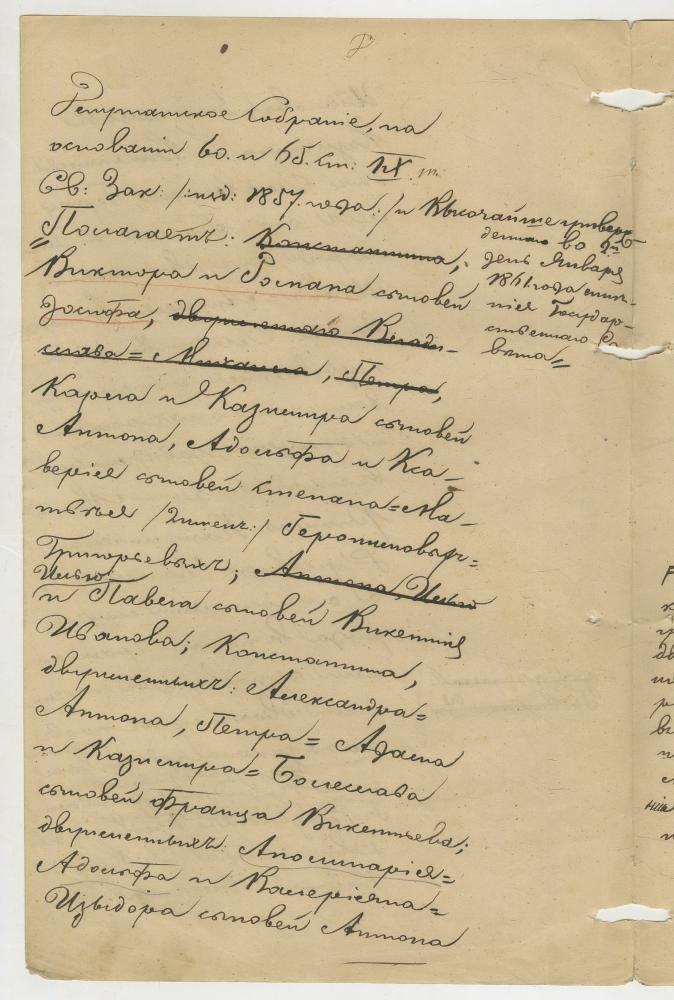 Депутатское Собрание, на
основании 60. и 65. ст: IX т.
Св: Зак: /:изд: 1857. года:/ и Высочайше утверж-
денного во 2й
день Января
1861. года мнѣ-
нія Государ-
ственнаго Со
вѣта=
"Полагаетъ: Константина,
Виктора и Романа сыновей
Іосифа, двуименнаго Влади-
слава=Михаила, Петра,
Карла и Казимира сыновей
Антона, Адольфа и Кса-
верія сыновей Степана=Ма-
твѣя /2имен:/ Геронимовых=
Григорьевыхъ; Антона, Илью
Илью
и Павла сыновей Викентія
Иванова; Константина,
двуименныхъ: Александра=
Антона, Петра=Адама
и Казимира=Болеслава
сыновей Франца Викентьева;
двуименныхъ: Аполинарія=
Адольфа и Валеріяна=
Изыдора сыновей Антона